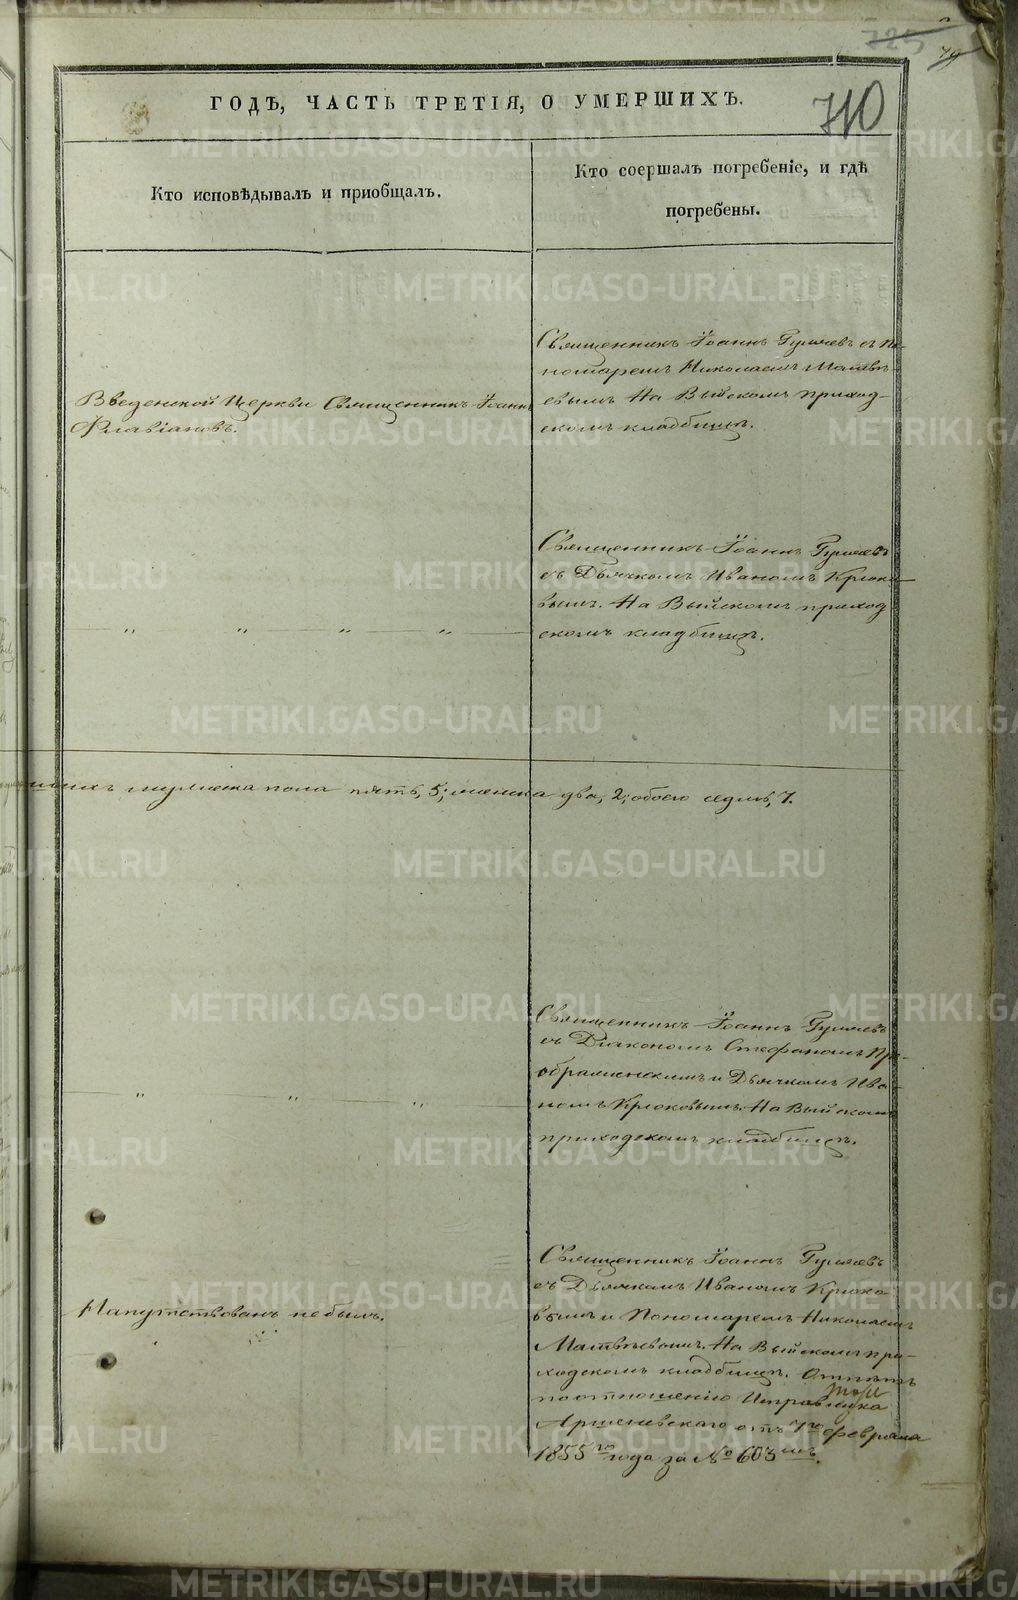 725
79
710
ГОДѢ, ЧАСТЬ ТРЕТІЯ, О УМЕРШИХЪ.
Кто исповѣдывалъ и приобщалъ.
Кто соершалъ погребеніе, и гдѣ
погребены.
Введенской Церкви Священникъ Іоаннъ
Флавіановъ.
Священникъ Іоаннъ Гуляевъ съ По-
номаремъ Николаемъ Матвѣ-
евымъ. На Выйскомъ приход-
скомъ кладбищѣ.
" " " "
Священникъ Іоаннъ Гуляевъ
съ Дьячкомъ Иваномъ Крюко-
вымъ. На Выйскомъ приход
скомъ кладбищѣ.
мужеска пола пять, 5; женска два, 2; обоего седмь, 7.
" " "
Священникъ Іоаннъ Гуляевъ
съ Діакономъ Стефаномъ Пре-
ображенскимъ и Дьячкомъ Ива-
номъ Крюковымъ. На Выйскомъ
приходскомъ кладбищѣ.
Напутствованъ не былъ.
Священникъ Іоаннъ Гуляевъ
съ Дьячкомъ Иваномъ Крюко
вымъ и Пономаремъ Николаемъ
Матвѣевымъ. На Выйскомъ при-
ходскомъ кладбищѣ. Отпѣтъ
по отношенію Исправника
Арсеневскаго отъ 7го февраля
1855го года за № 603мъ.
METRIKI.GASO-URAL.RU